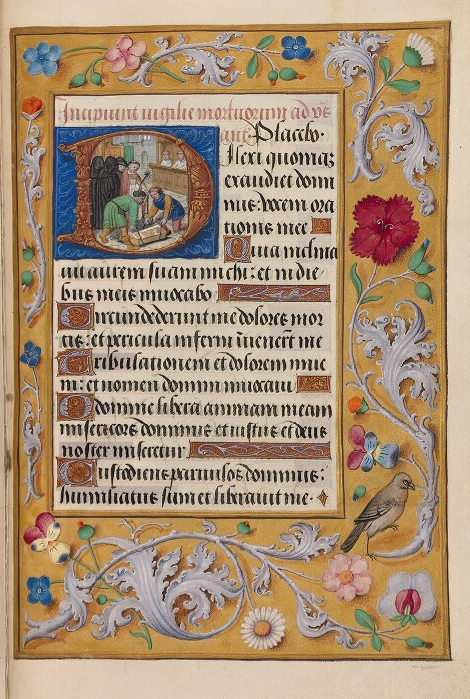 Incipiunt vigilie mortuorum ad vs̄
ant. Placebo.
Dilexi quoniaꝫ
exaudiet domi
nus: vocem ora
tionis mee
Quia inclina
uit aurem suam michi: et in die
bus meis inuocabo
Circundederunt me dolores mor
tis: et pericula inferni inuenerūt me
Tribulationem et dolorem inue
ni: et nomen domini inuocaui
O domine libera animam meam
misericors dominus et iustus et deus
noster miseretur
Custodiens paruulos dominus:
humiliatus sum et liberauit me.